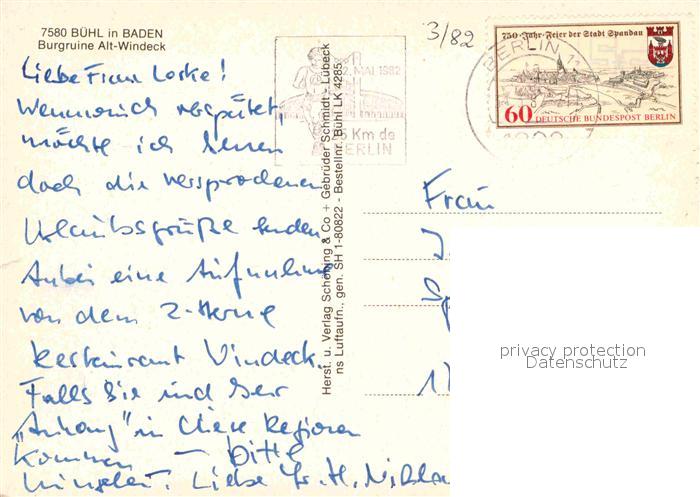 7580 BÜHL in BADEN
Burgruine Alt-Windeck
3/82
Liebe Frau Loske!
Wenn auch verspätet,
möchte ich Ihnen
doch die versprochenen
Urlaubsgrüße senden
Anbei eine Aufnahme
von dem 2-Sterne
Restaurant Windeck.
Falls Sie und Ihr
„Anhang" in diese Regionen
kommen — bitte
Liebe Gr.
Herst. u. Verlag Schöning & Co + Gebrüder Schmidt - Lübeck
ns Luftaufn., gen. SH 1-80822 - Bestellnr. Bühl LK 4285
MAI 1982
Km de
BERLIN
BERLIN 11
750-Jahr-Feier der Stadt Spandau
60 DEUTSCHE BUNDESPOST BERLIN
Frau
privacy protection
Datenschutz